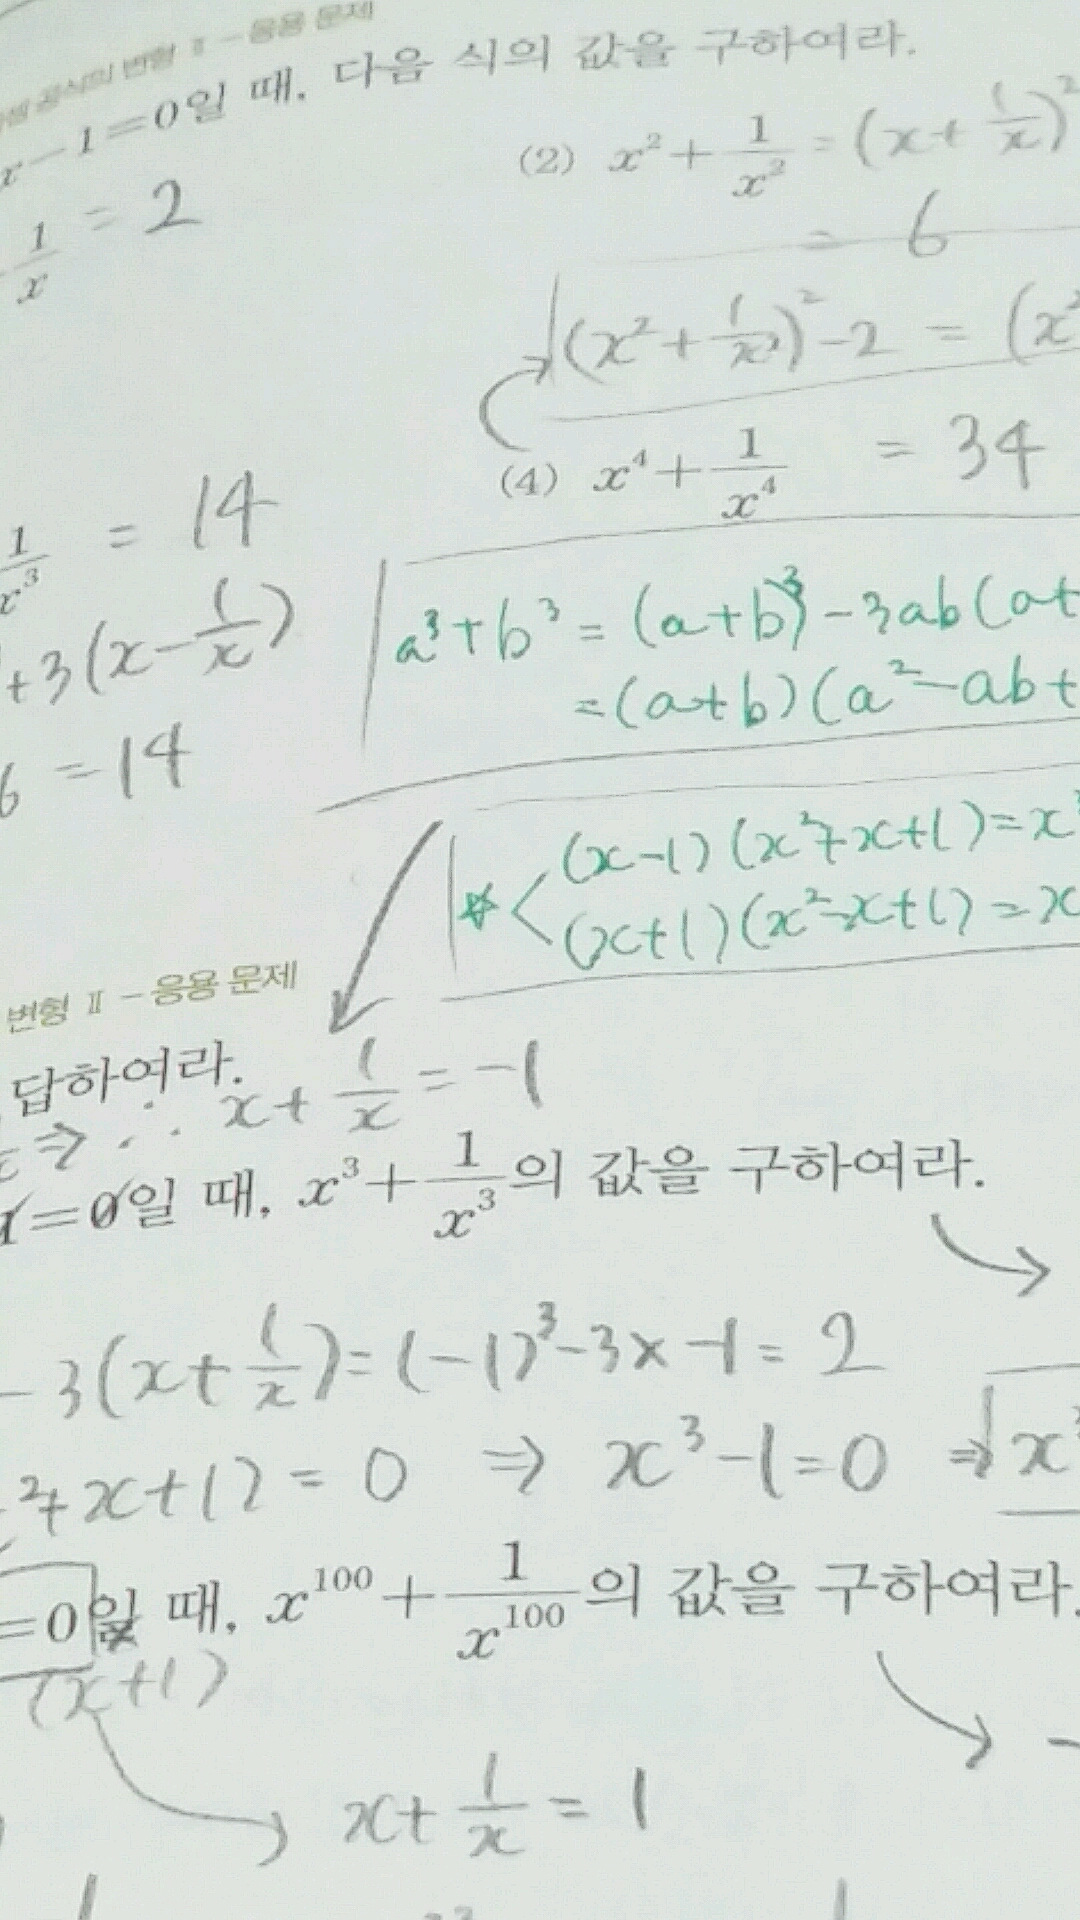 공식의 변형 Ⅱ - 응용 문제
x-1=0일 때, 다음 식의 값을 구하여라.
1/x = 2
(2) x²+1/x² = (x+1/x)²
= 6
(x²+1/x²)²-2 = (x²
(4) x⁴+1/x⁴ = 34
1/x³ = 14
+3(x-1/x)
6 = 14
a³+b³ = (a+b)³-3ab(a+
=(a+b)(a²-ab+
(x-1)(x²+x+1)=x³
☆< (x+1)(x²-x+1)=x
변형 Ⅱ - 응용 문제
답하여라.
⇒ ∴ x+1/x = -1
1=0일 때, x³+1/x³의 값을 구하여라.
-3(x+1/x)=(-1)³-3×-1=2
²+x+1)=0 ⇒ x³-1=0 ⇒ x³
=0일 때, x¹⁰⁰+1/x¹⁰⁰의 값을 구하여라.
(x+1)
x+1/x = 1